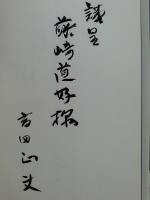 謹呈
藤崎道好様
吉田正丈